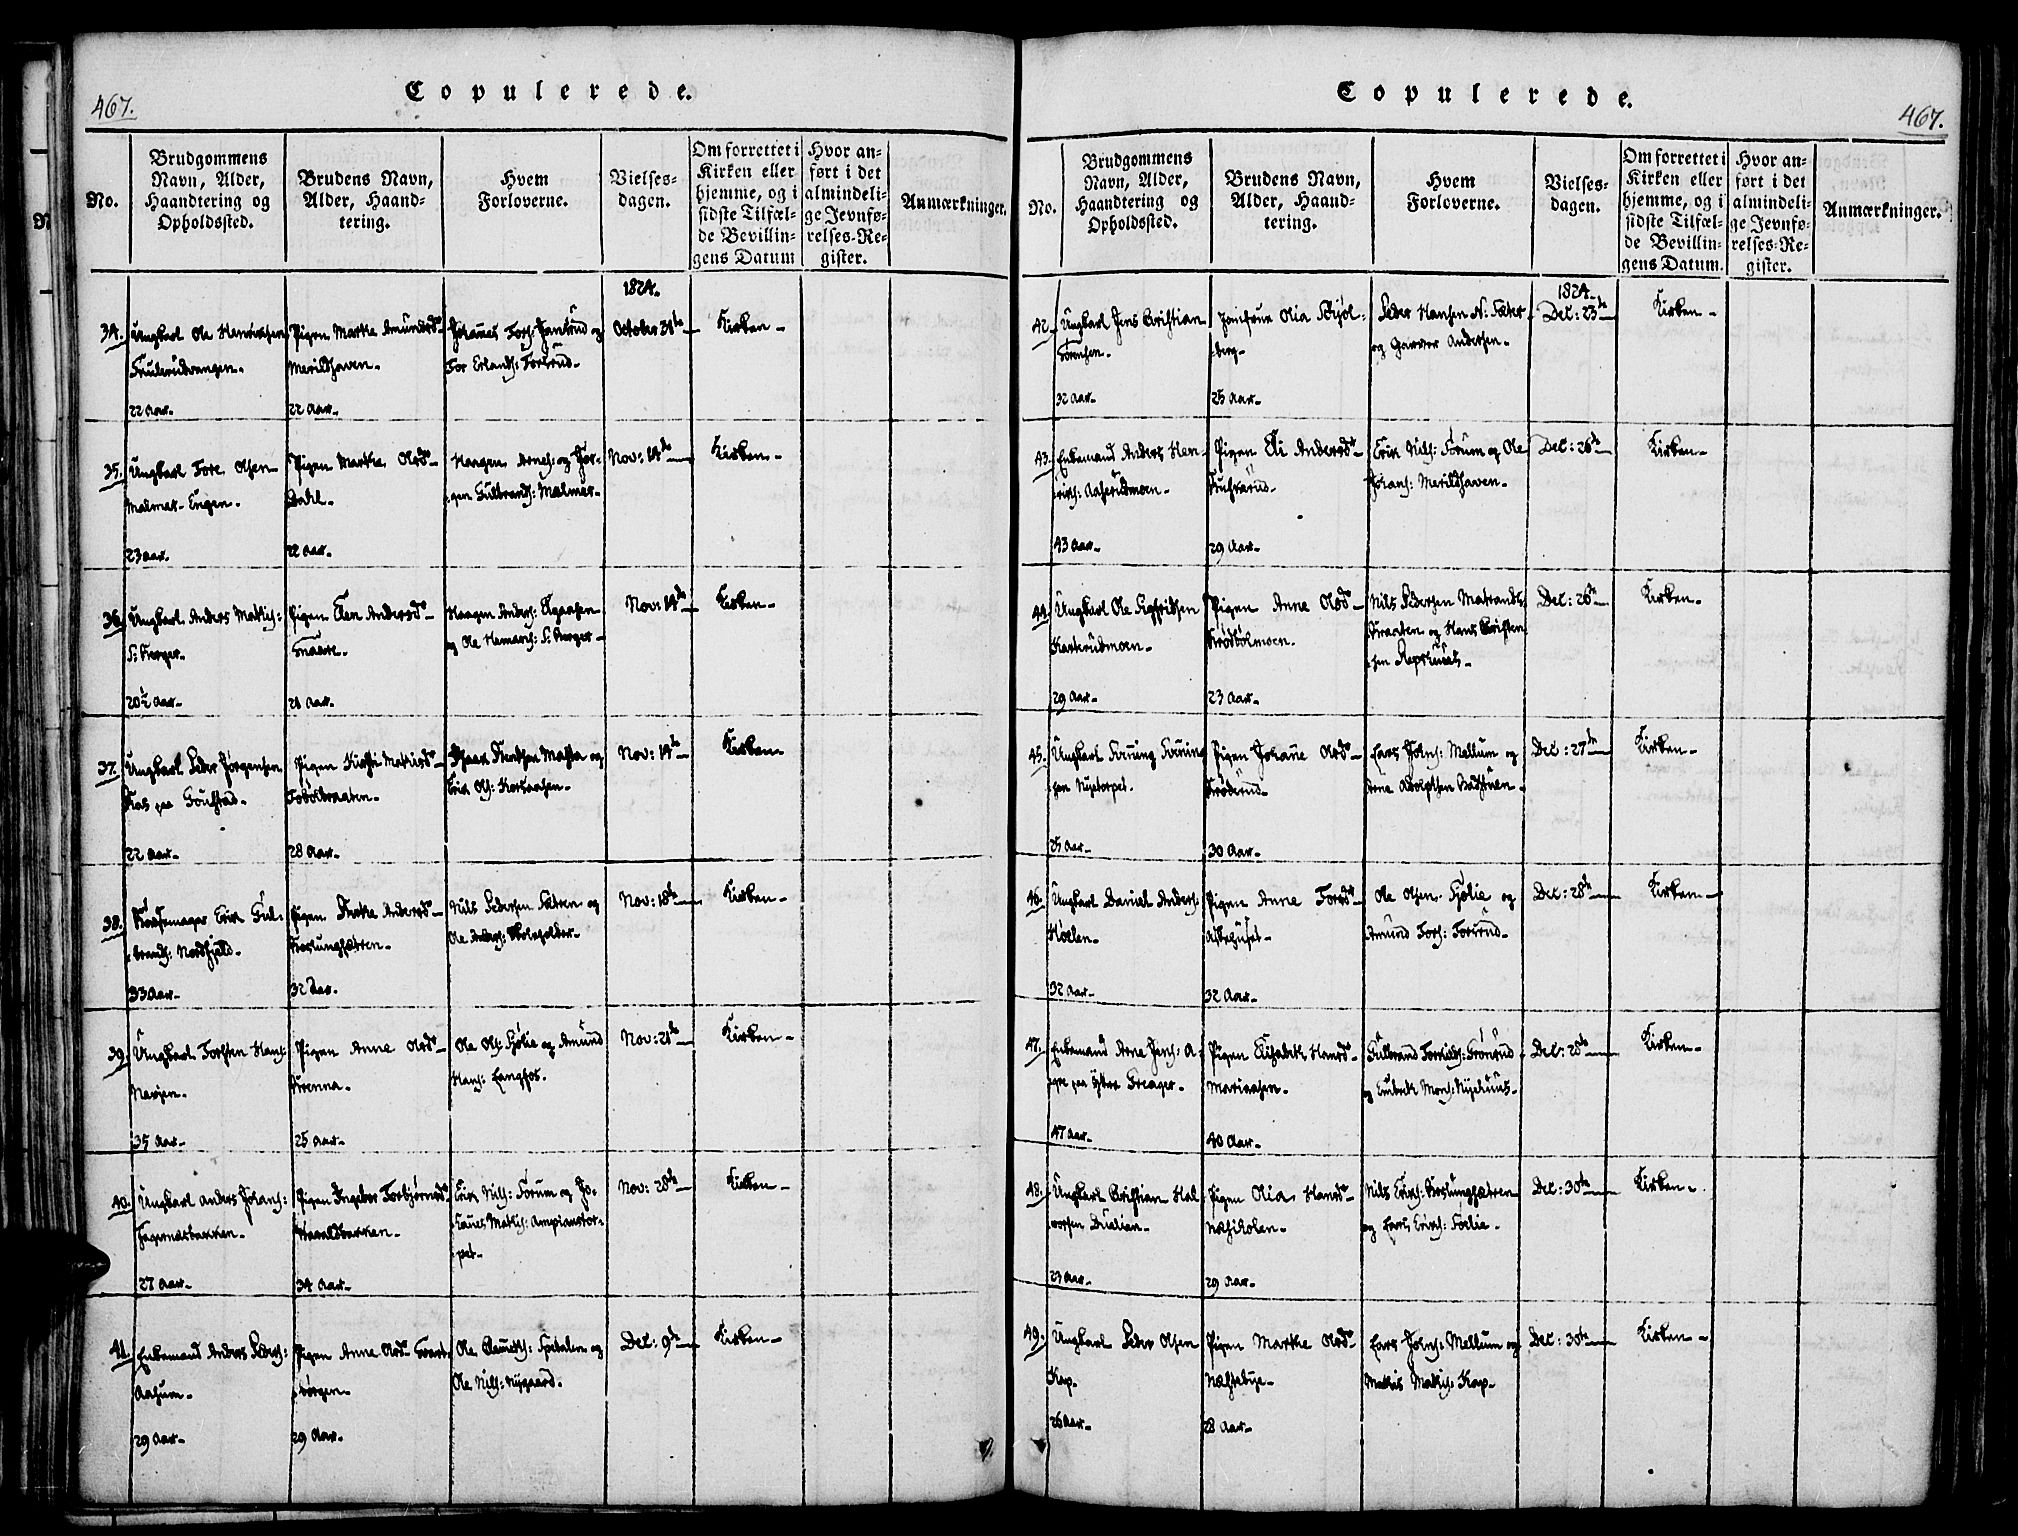 467.
Copulerede.
No.
Brudgommens
Navn, Alder,
Haandtering og
Opholdssted.
Brudens Navn,
Alder, Haand-
tering.
Hvem
Forloverne.
Vielses-
dagen.
Om forrettet i
Kirken eller
hjemme, og i
sidste Tilfæl-
de Bevillin-
gens Datum
Hvor an-
ført i det
almindeli-
ge Jevnfø-
relses-Re-
gister.
Anmærkninger.
1824.
34.
Ungkarl Ole Henrichsen
22 Aar.
Pigen Marthe Amundsd.
Merildhaven.
22 Aar.
Johannes Torst: og
Tor Erlands:
October 31te
Kirken
35.
Ungkarl Tore Olsen
Malmer-Engen.
23 Aar.
Pigen Marthe Olsd.
Dahl.
22 Aar.
Haagen Arnes: og Jør-
gen Gulbrands: Malmer
Nov: 14de
Kirken
36.
Ungkarl Anders Mathis:
20½ Aar.
Pigen Elen Andersd.
21 Aar.
Haagen Anders:
og Ole Hemans:
Nov: 14de
Kirken
37.
Ungkarl Peder Jørgensen
22 Aar.
Pigen Kirsti Mathisd.
28 Aar.
Erik Ols:
Nov: 14de
Kirken
38.
Erik Gul-
brands: Nordhjeld.
33 Aar.
Pigen Andersd.
32 Aar.
Nils Pedersen Sætren og
Ole Anders: Skoleholder
Nov: 18de
Kirken
39
Ungkarl Torsten Hans:
35 Aar.
Pigen Anne Olsd.
25 Aar.
Ole Ols: Sjølie og Amund
Hans: Langfos.
Nov: 21de
Kirken
40.
Ungkarl Anders Johans:
27 Aar.
Pigen Ingebor Torbjørnsd.
Haraldbakken.
34 Aar.
Erik Nils: Sorum og Jo-
hannes Mathis: Ampianstor-
pet.
Nov: 28de
Kirken
41.
Enkemand Anders Peders:
Aasum.
29 Aar.
Pigen Anne Olsd.
29 Aar.
Ole Spetalen og
Ole Nils: Nygaard.
Dec: 9de
Kirken
Copulerede.
467.
No.
Brudgommens
Navn, Alder,
Haandtering og
Opholdssted.
Brudens Navn,
Alder, Haand-
tering.
Hvem
Forloverne.
Vielses-
dagen.
Om forrettet i
Kirken eller
hjemme, og i
sidste Tilfæl-
de Bevillin-
gens Datum.
Hvor an-
ført i det
almindeli-
ge Jevnfø-
relses-Re-
gister.
Anmærkninger.
1824.
42.
Ungkarl Jens Christian
Sørensen.
32 Aar.
Jomfrue Olia Skjøl-
berg.
25 Aar.
Peder Hansen N: Sæter
og Andersen.
Dec: 23de
Kirken
43.
Enkemand Anders Hen-
richs: Aaserudmoen.
43 Aar.
Pigen Eli Andersd.
29 Aar.
Erik Nils: Sorum og Ole
Johans: Merildhaven.
Dec: 26de
Kirken
44.
Ungkarl Ole Sigfridsen
29 Aar.
Pigen Anne Olsd.
23 Aar.
Nils Pedersen Matrands
Braaten og Hans Christen-
sen
Dec: 26de
Kirken.
45.
Ungkarl
Nyetorpet.
25 Aar.
Pigen Johanne Olsd.
30 Aar.
Lars Johns: Mellum og
Arne Adolphsen Badstuen
Dec: 27de
Kirken
46.
Ungkarl Daniel Anders:
Hoelen.
32 Aar.
Pigen Anne Torsd.
32 Aar.
Ole Olsen Sjølie og
Amund Tors:
Dec: 28de
Kirken
47.
Enkemand Arne Jens:
47 Aar.
Pigen Elisabeth Hansd.
40 Aar.
Gulbrand Grønrud
og Embret Mons: Nyehuus
Dec: 28de
Kirken
48.
Ungkarl Christian Hal-
vorsen
23 Aar.
Pigen Olia Hansd.
29 Aar.
Nils Erichs:
og Lars Erichs:
Dec: 30te
Kirken.
49.
Ungkarl Peder Olsen
Kap.
26 Aar.
Pigen Marthe Olsd.
Næstebye
28 Aar.
Lars Johns: Mellum og
Mathis Mathis: Kap.
Dec: 30te
Kirken